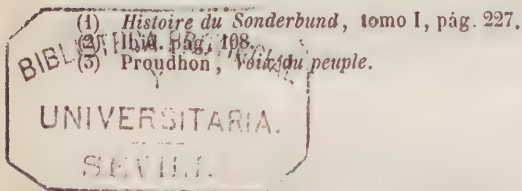 (1) Histoire du Sonderbund, tomo I, pág. 227.
(2) Ibid. pág. 198.
(3) Proudhon, Voix du peuple.
UNIVERSITARIA.